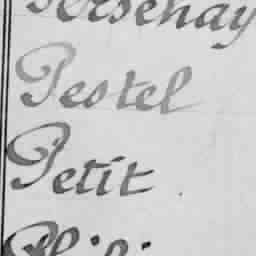 Persehay
Pestel
Petit